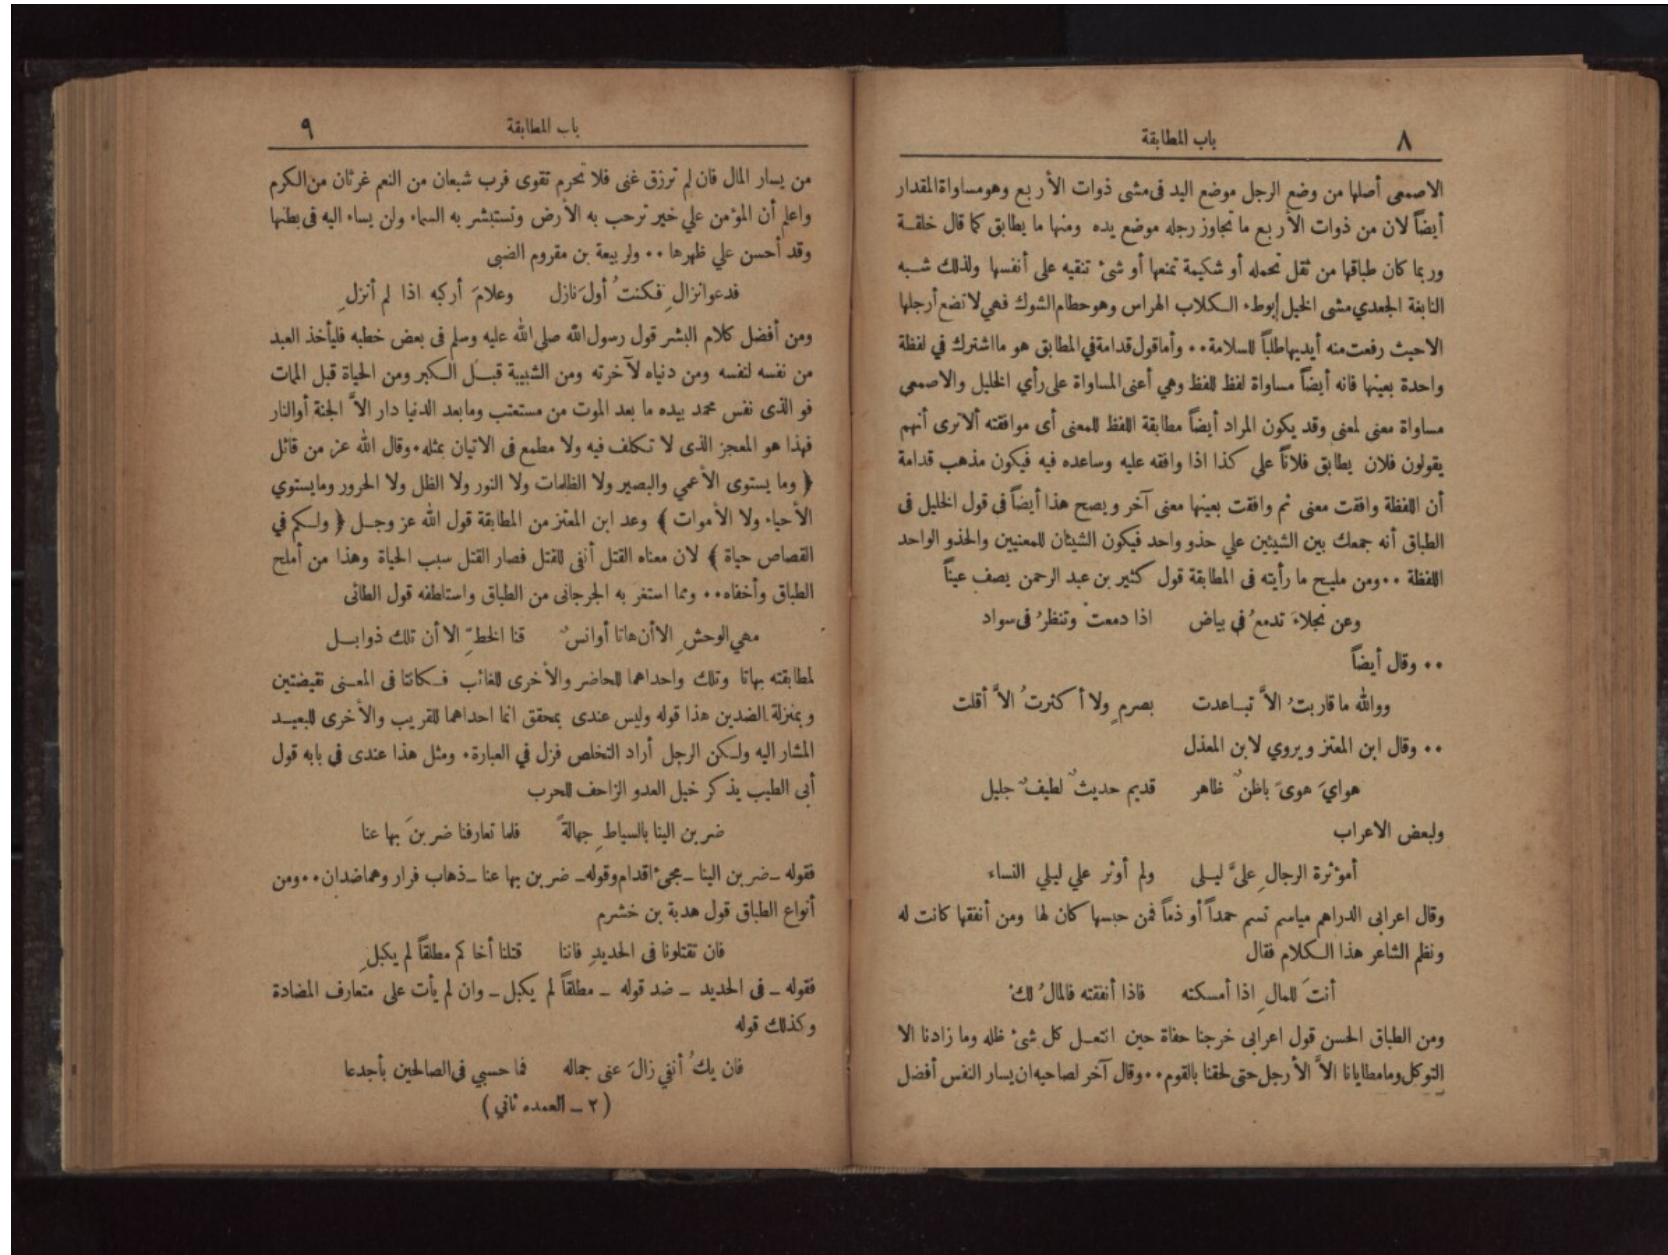 ٨
باب المطابقة
الاصمعى أصلها من وضع الرجل موضع اليد فى مشى ذوات الأربع وهو مساواة المقدار
أيضاً لان من ذوات الأربع ما تجاوز رجله موضع يده ومنها ما يطابق كما قال خلقة
وربما كان طباقها من ثقل تحمله أو شكيمة تمنعها أو شئ تتقيه على أنفسها ولذلك شبه
النابغة الجعدي مشى الخيل بوطء الكلاب الهراس وهو حطام الشوك فهي لا تضع أرجلها
الاحيث رفعت منه أيديها طلباً للسلامة ٠٠ وأما قول قدامة في المطابق هو ما اشترك في لفظة
واحدة بعينها فانه أيضاً مساواة لفظ للفظ وهي أعنى المساواة على رأي الخليل والاصمعى
مساواة معنى لمعنى وقد يكون المراد أيضاً مطابقة اللفظ للمعنى أى موافقته ألا ترى أنهم
يقولون فلان يطابق فلاناً علي كذا اذا وافقه عليه وساعده فيه فيكون مذهب قدامة
أن اللفظة وافقت معنى ثم وافقت بعينها معنى آخر ويصح هذا أيضاً فى قول الخليل فى
الطباق أنه جمعك بين الشيئين علي حذو واحد فيكون الشيئان للمعنيين والحذو الواحد
اللفظة ٠٠ ومن مليح ما رأيته فى المطابقة قول كثير بن عبد الرحمن يصف عيناً
وعن نجلاءَ تدمعُ في بياض اذا دمعتْ وتنظرُ فى سواد
٠٠ وقال أيضاً
ووالله ما قاربتُ الاَّ تباعدت بصرمٍ ولا أكثرتُ الاَّ أقلت
٠٠ وقال ابن المعتز ويروي لابن المعذل
هوايَ هوىً باطنٌ ظاهر قديم حديثٌ لطيفٌ جليل
ولبعض الاعراب
أمؤثرة الرجالِ عليَّ ليلى ولم أوثر علي ليلي النساء
وقال اعرابى الدراهم مياسم تسم حمداً أو ذماً فمن حبسها كان لها ومن أنفقها كانت له
ونظم الشاعر هذا الكلام فقال
أنتَ للمالِ اذا أمسكته فاذا أنفقته فالمالُ لكْ
ومن الطباق الحسن قول اعرابى خرجنا حفاة حين انتعل كل شئ ظله وما زادنا الا
التوكل وما مطايانا الاَّ الأرجل حتى لحقنا بالقوم ٠٠ وقال آخر لصاحبه ان يسار النفس أفضل
باب المطابقة
٩
من يسار المال فان لم ترزق غنى فلا تحرم تقوى فرب شبعان من النعم غرثان من الكرم
واعلم أن المؤمن علي خير ترحب به الأرض وتستبشر به السماء ولن يساء اليه فى بطنها
وقد أحسن علي ظهرها ٠٠ ولربيعة بن مقروم الضبى
فدعوا نزالِ فكنتُ أولَ نازل وعلامَ أركبه اذا لم أنزلِ
ومن أفضل كلام البشر قول رسول الله صلى الله عليه وسلم فى بعض خطبه فليأخذ العبد
من نفسه لنفسه ومن دنياه لآخرته ومن الشبيبة قبل الكبر ومن الحياة قبل الممات
فو الذى نفس محمد بيده ما بعد الموت من مستعتب وما بعد الدنيا دار الاَّ الجنة أو النار
فهذا هو المعجز الذى لا تكلف فيه ولا مطمع فى الاتيان بمثله ٠ وقال الله عز من قائل
﴿ وما يستوى الأعمي والبصير ولا الظلمات ولا النور ولا الظل ولا الحرور وما يستوي
الأحياء ولا الأموات ﴾ وعد ابن المعتز من المطابقة قول الله عز وجل ﴿ ولكم في
القصاص حياة ﴾ لان معناه القتل أنفى للقتل فصار القتل سبب الحياة وهذا من أملح
الطباق وأخفاه ٠٠ ومما استغر به الجرجانى من الطباق واستلطفه قول الطائى
مهي الوحشِ الا أن هاتا أوانسٌ قنا الخطِّ الا أن تلك ذوابل
لمطابقته بهاتا وتلك واحداهما للحاضر والأخرى للغائب فكانتا فى المعنى نقيضتين
وبمنزلة الضدين هذا قوله وليس عندى بمحقق انما احداهما للقريب والأخرى للبعيد
المشار اليه ولكن الرجل أراد التخلص فزل في العبارة ٠ ومثل هذا عندى فى بابه قول
أبى الطيب يذكر خيل العدو الزاحف للحرب
ضربن الينا بالسياطِ جهالةً فلما تعارفنا ضربنَ بها عنا
فقوله ـ ضربن الينا ـ مجئ اقدام وقوله ـ ضربن بها عنا ـ ذهاب فرار وهما ضدان ٠٠ ومن
أنواع الطباق قول هدبة بن خشرم
فان تقتلونا فى الحديدِ فاننا قتلنا أخاكم مطلقاً لم يكبلِ
فقوله ـ فى الحديد ـ ضد قوله ـ مطلقاً لم يكبل ـ وان لم يأت على متعارف المضادة
وكذلك قوله
فان يكُ أنفي زالَ عنى جماله فما حسبي فى الصالحين بأجدعا
( ٢ ـ العمده ثاني )